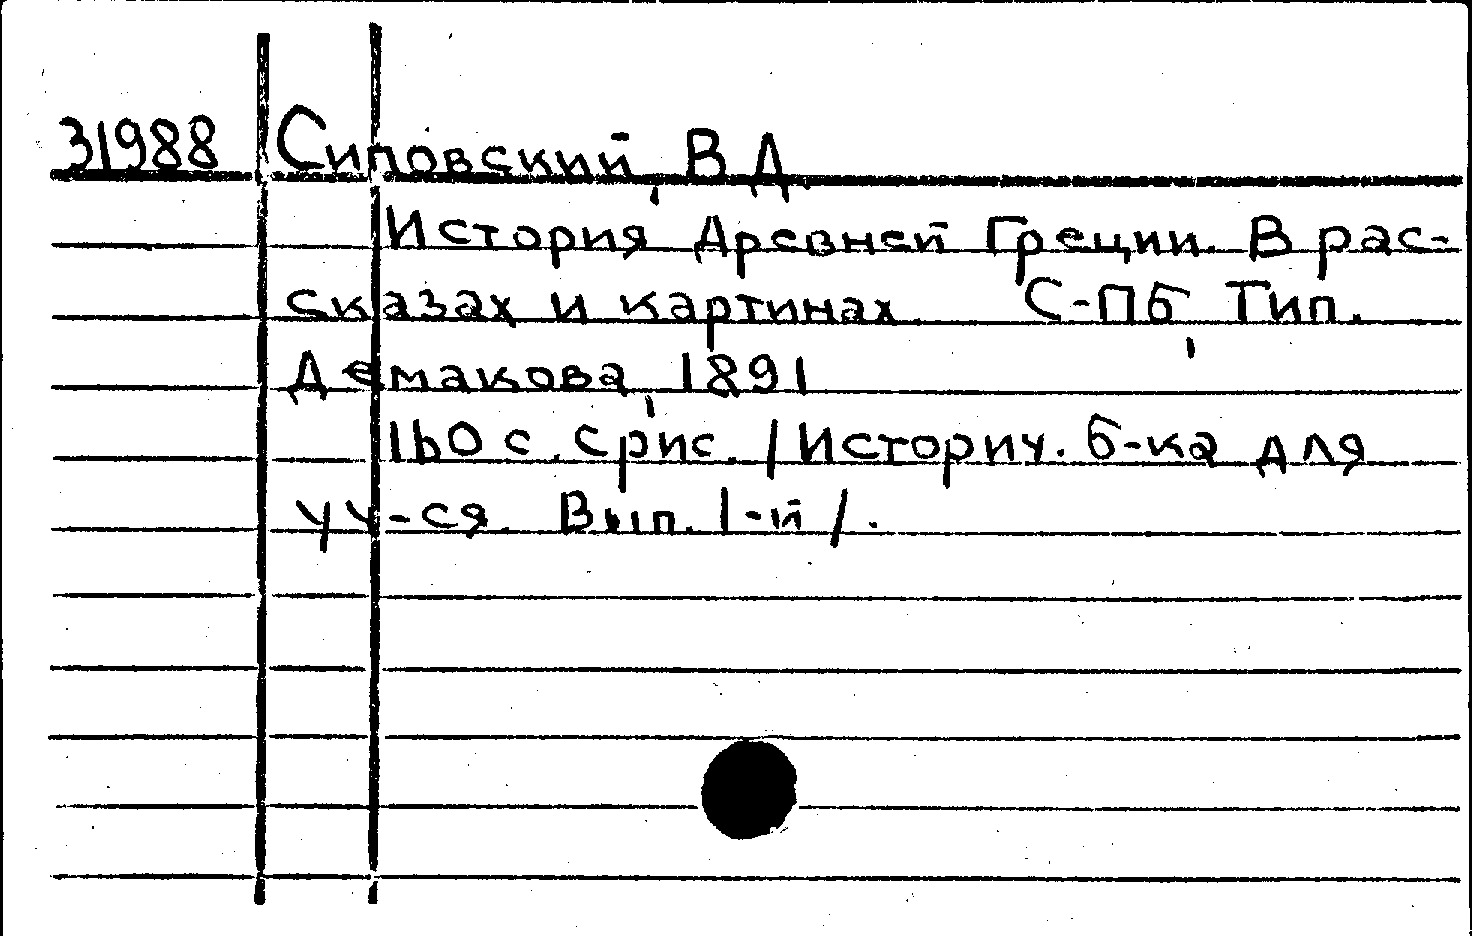 31988 Сиповский, В Д
История Древней Греции. В рас-
сказах и картинах. С-Пб, Тип.
Демакова, 1891
160 с. с рис. /Историч. б-ка для
уч-ся. Вып. 1-й/.